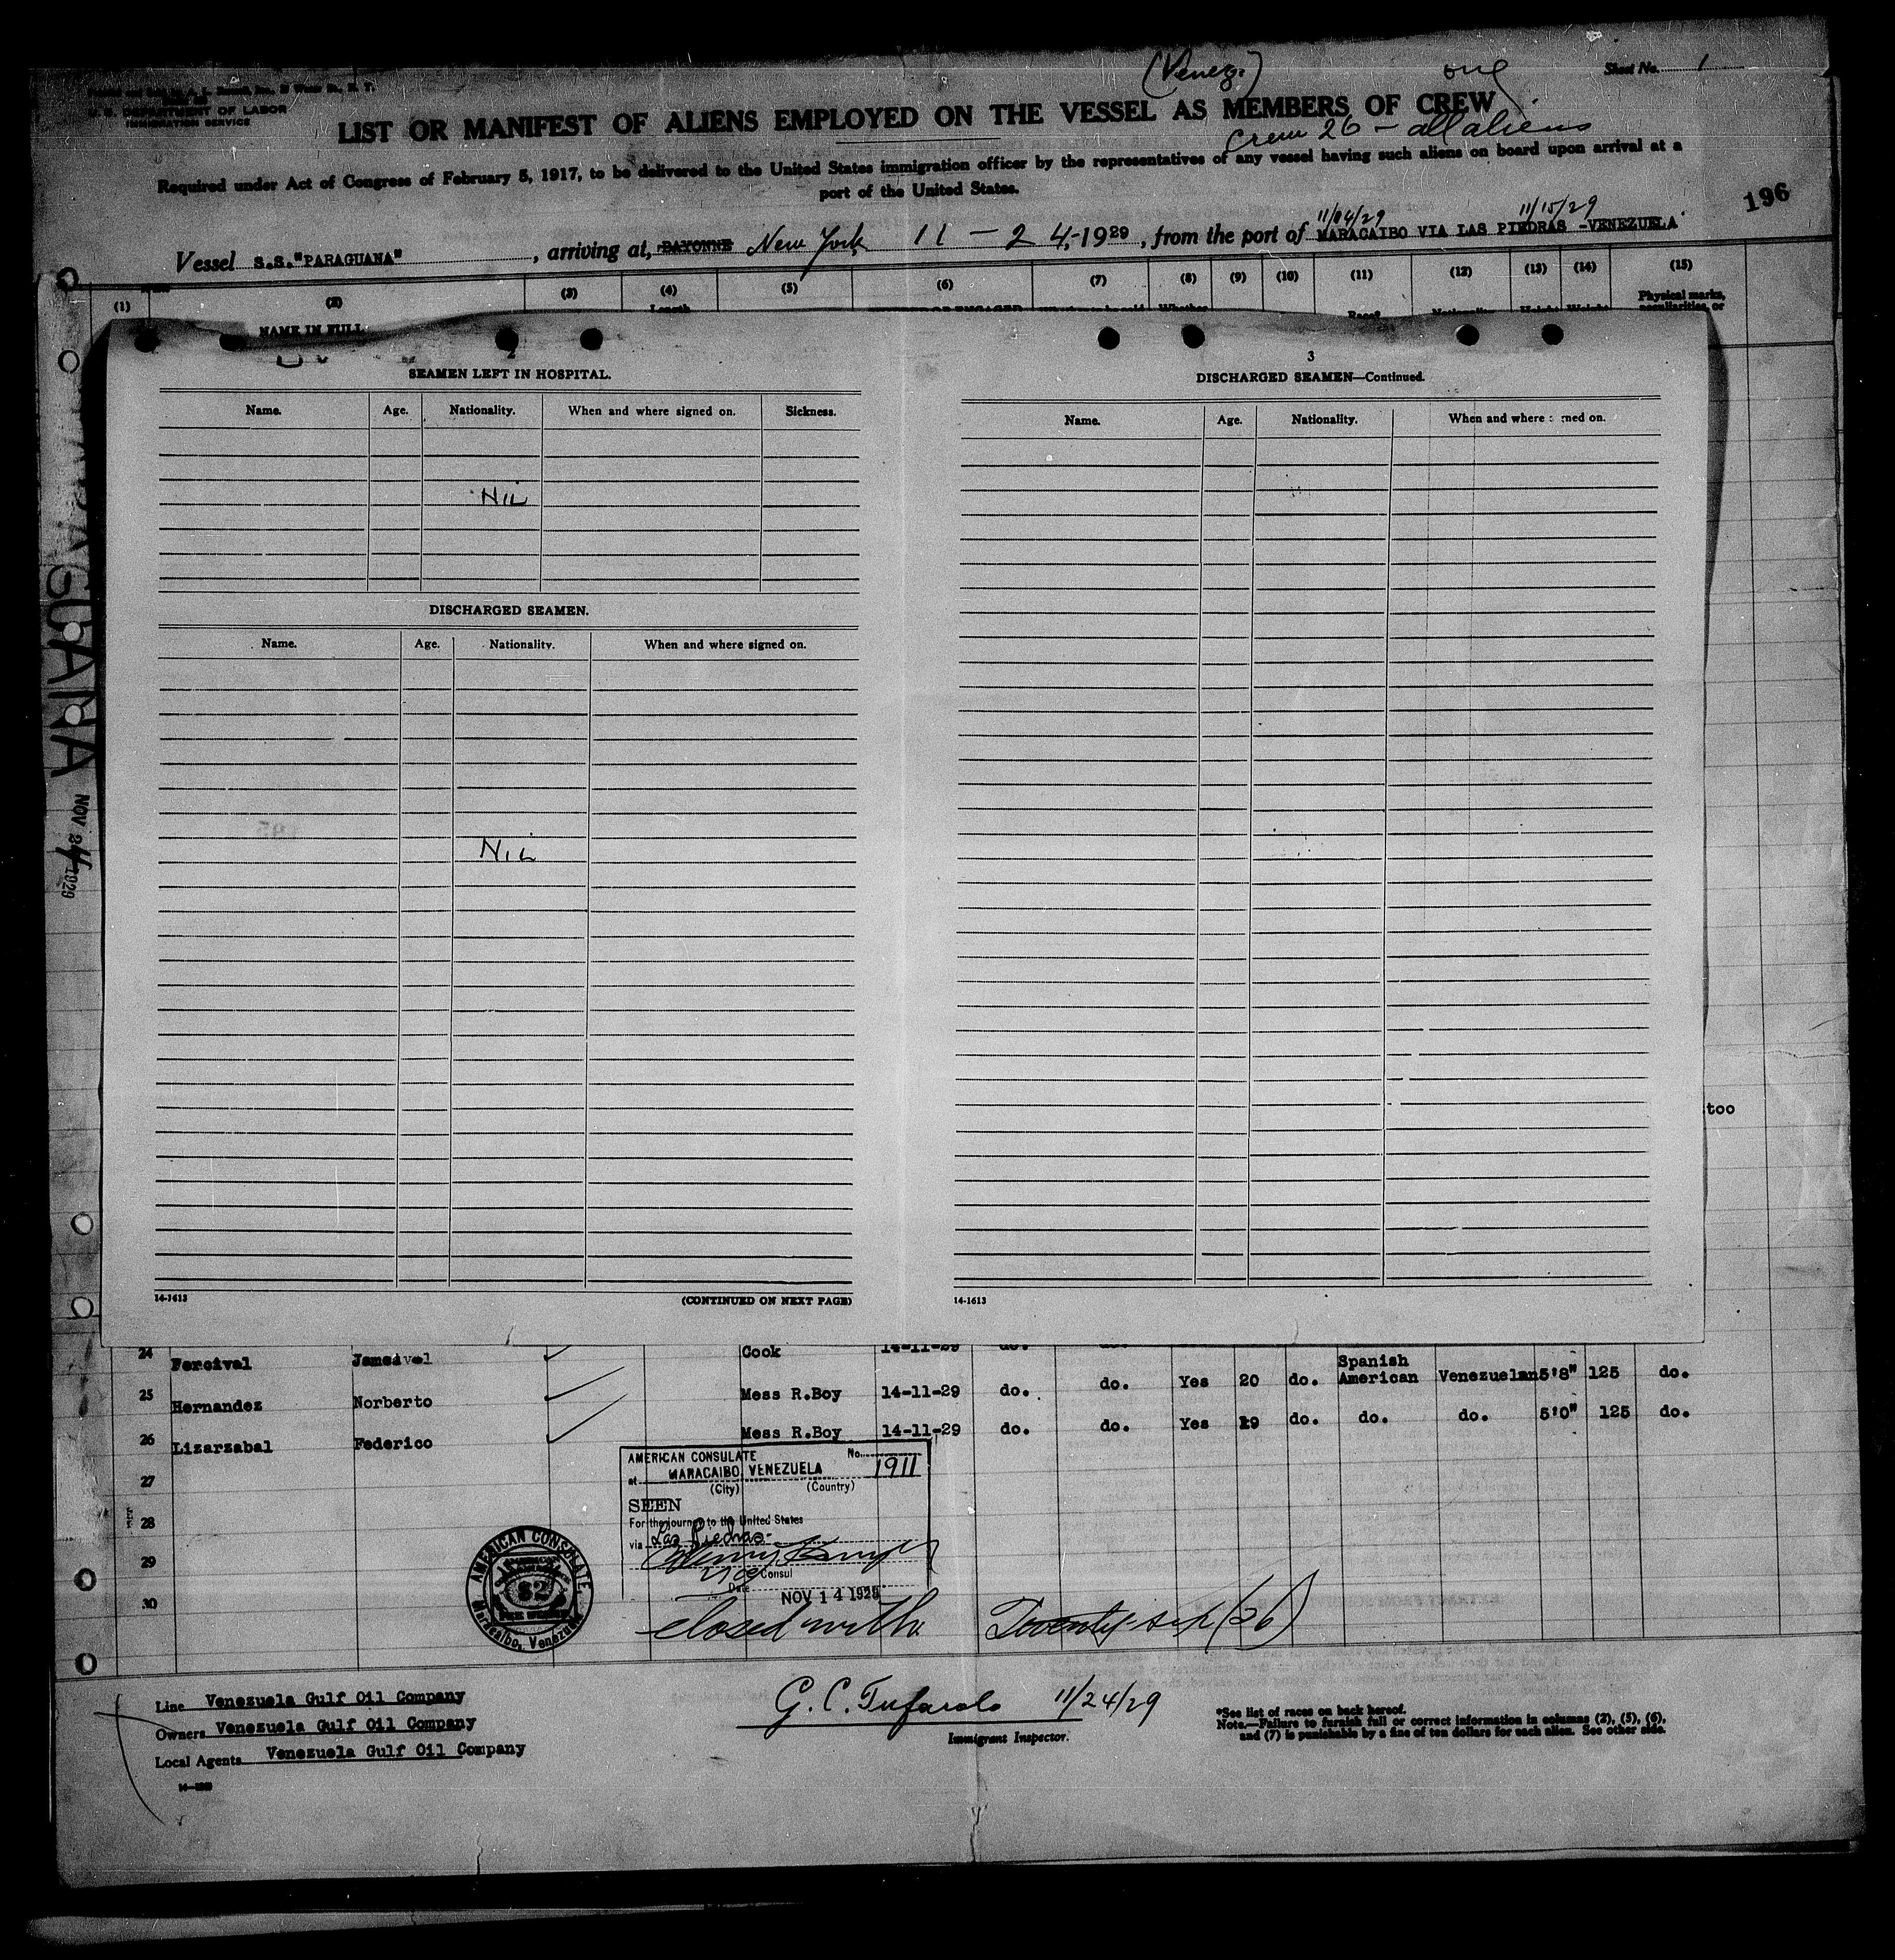 (Venez.)
Sheet No. 1
U. S. DEPARTMENT OF LABOR
IMMIGRATION SERVICE
LIST OR MANIFEST OF ALIENS EMPLOYED ON THE VESSEL AS MEMBERS OF CREW
Crew 26 - all aliens
Required under Act of Congress of February 5, 1917, to be delivered to the United States immigration officer by the representatives of any vessel having such aliens on board upon arrival at a
port of the United States.
196
11/14/29 11/15/29
Vessel S.S."PARAGUANA", arriving at, BAYONNE New York 11 - 24,-1929, from the port of MARACAIBO VIA LAS PIEDRAS -VENEZUELA
(1) (2) (3) (4) (5) (6) (7) (8) (9) (10) (11) (12) (13) (14) (15)
Physical marks,
peculiarities, or
NAME IN FULL
Length
Whether
Race*
2
SEAMEN LEFT IN HOSPITAL.
Name. Age. Nationality. When and where signed on. Sickness.
NIL
DISCHARGED SEAMEN.
Name. Age. Nationality. When and where signed on.
NIL
14-1613
(CONTINUED ON NEXT PAGE)
3
DISCHARGED SEAMEN—Continued.
Name. Age. Nationality. When and where ned on.
14-1613
GUANA
NOV 24 1929
too
24 Percival Cook 14-11-29 do. do.
25 Hernandez Norberto Mess R.Boy 14-11-29 do. do. Yes 20 do. Spanish American Venezuelan 5'8" 125 do.
26 Lizarzabal Federico Mess R.Boy 14-11-29 do. do. Yes 19 do. do. do. 5'0" 125 do.
27
28
29
30
AMERICAN CONSULATE No. 1911
at MARACAIBO VENEZUELA
(City) (Country)
SEEN
For the journey to the United States
via Las Piedras.
Vice Consul
Date NOV 14 1929
AMERICAN CONSULATE,
$2
FEE STAMP
Maracaibo, Venezuela
closed with Twenty-six (26)
Line Venezuela Gulf Oil Company
Owners Venezuela Gulf Oil Company
Local Agents Venezuela Gulf Oil Company
G. C. Tufarolo 11/24/29
Immigrant Inspector.
*See list of races on back hereof.
Note.—Failure to furnish full or correct information in columns (2), (5), (6),
and (7) is punishable by a fine of ten dollars for each alien. See other side.